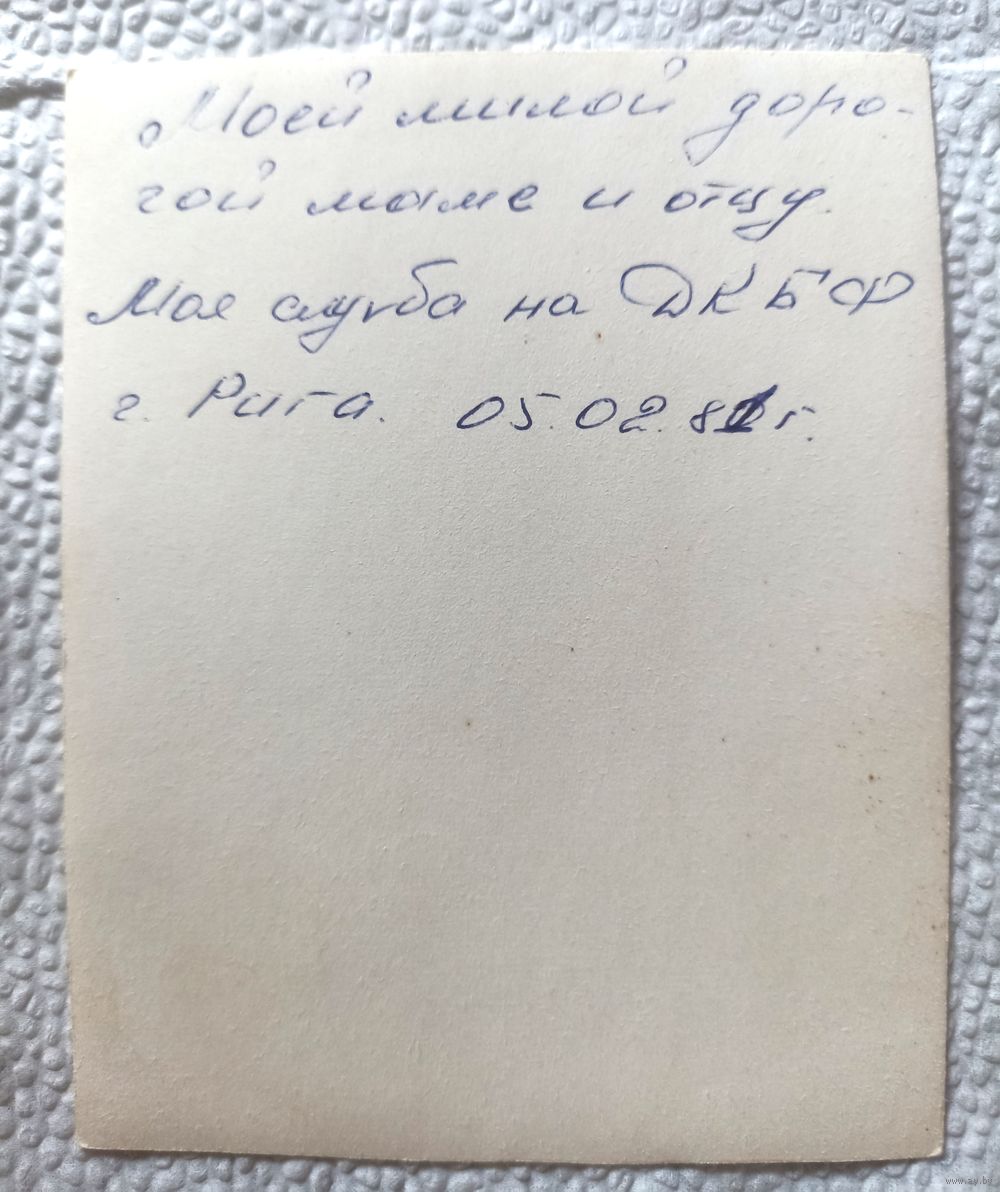 Моей милой доро-
гой маме и отцу.
Моя служба на ДКБФ
г. Рига. 05.02.81г.
www.ay.by